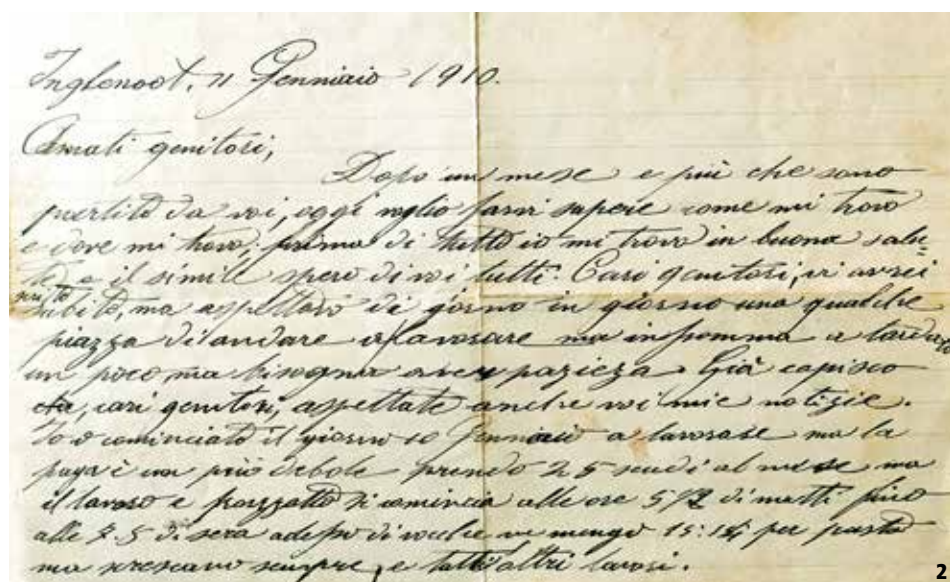 Inglenoot, 11 Genniaio 1910.
Amati genitori,
Dopo un mese e più che sono
partito da voi, oggi voglio farvi sapere come mi trovo
e dove mi trovo; prima di tutto io mi trovo in buona salu-
te e il simile spero di voi tutti. Cari genitori, vi avrei
scritto
subito, ma aspettavo di giorno in giorno una qualche
piazza di andare a lavorare ma insomma a tardato
un poco, ma bisogna aver pazieza. Già capisco
cari genitori, aspettate anche voi mie notizie.
Io o cominciato il giorno 10 Genniaio a lavorare ma la
paga è un più debole prendo 25 scudi al mese ma
il lavoro e si comincia alle ore 5 1/2 di matti fino
alle di sera di vache ne mungo per
ma crescano sempre, e tutti altri lavori.
2